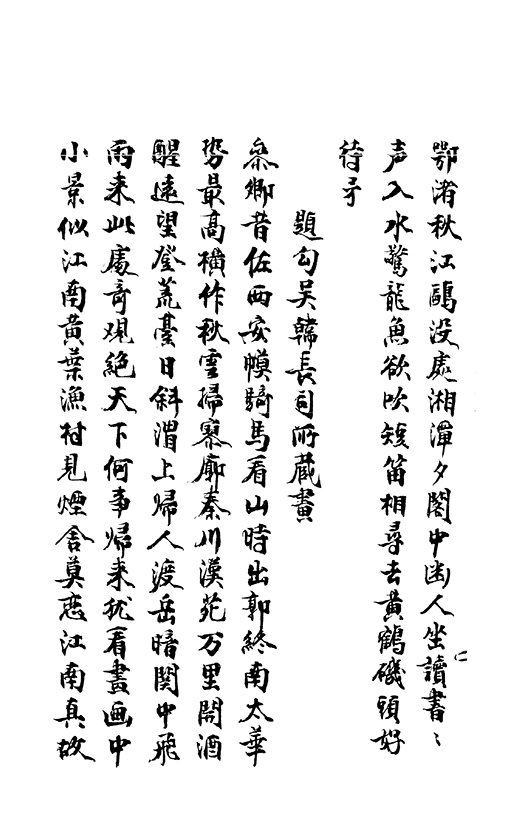 鄂渚秋江鷗没處湘潭夕閣中幽人坐讀書〻
声入水驚龍魚欲吹短笛相尋去黄鶴磯頭好
待予
題勾吴韓長司所蔵畫
叅卿昔佐西安幙騎馬看山時出郭終南太華
势最高橫作秋雲掃寥廓秦川漢苑万里閒酒
醒遠望登荒臺日斜渭上歸人渡岳暗関中飛
雨来此處竒观絶天下何事歸来犹看畫画中
小景似江南黄葉漁村見煙舍莫恋江南真故